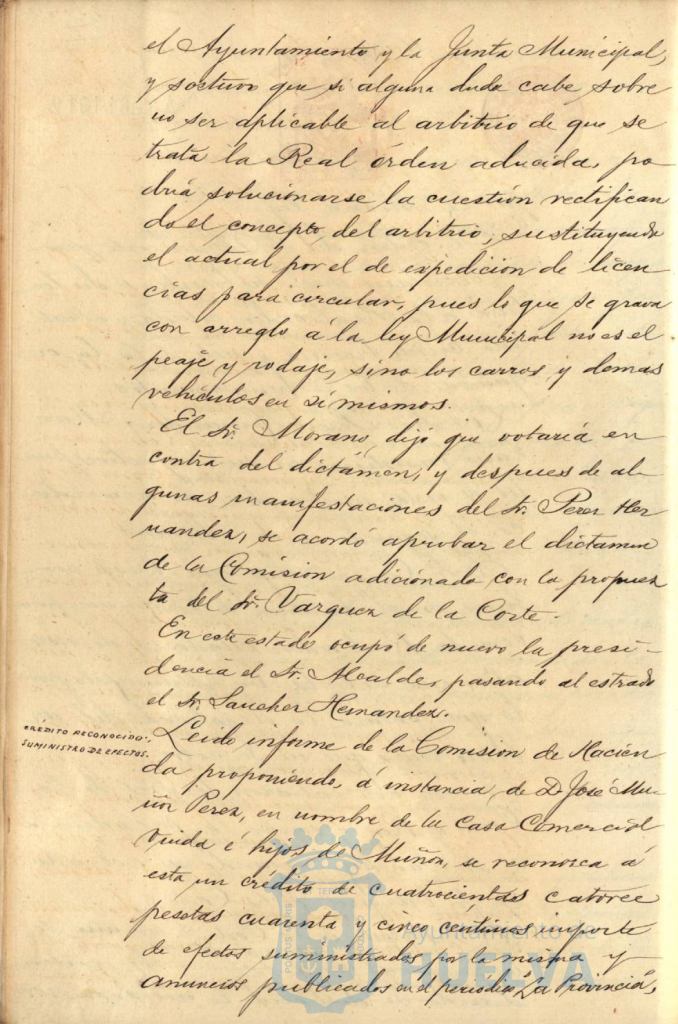 el Ayuntamiento y la Junta Municipal,
y sostuvo que si alguna duda cabe sobre
no ser aplicable al arbitrio de que se
trata la Real órden aducida, po
dria solucionarse la cuestión rectifican
do el concepto del arbitrio, sustituyendo
el actual por el de expedición de licen
cias para circular, pues lo que se grava
con arreglo á la ley Municipal no es el
peaje y rodaje, sino los carros y demas
vehículos en sí mismos.
El Sr. Morano, dijo que votaría en
contra del dictámen, y despues de al
gunas manifestaciones del Sr. Perez Her
nandez, se acordó aprobar el dictamen
de la Comision adicionada con la propues
ta del Sr. Vazquez de la Corte.
En este estado ocupó de nuevo la presi-
dencia el Sr. Alcalde, pasando al estrado
el Sr. Sanchez Hernandez.
CRÉDITO RECONOCIDO:
SUMINISTRO DE EFECTOS.
Leido informe de la Comision de Hacien
da proponiendo, á instancia de D. José Mu-
ñoz Perez, en nombre de la Casa Comercial
Viuda é hijos de Muñoz, se reconozca á
esta un crédito de cuatrocientas catorce
pesetas cuarenta y cinco céntimos importe
de efectos suministrados por la misma y
anuncios publicados en el periódico "La Provincia",
Ayuntamiento de
HUELVA